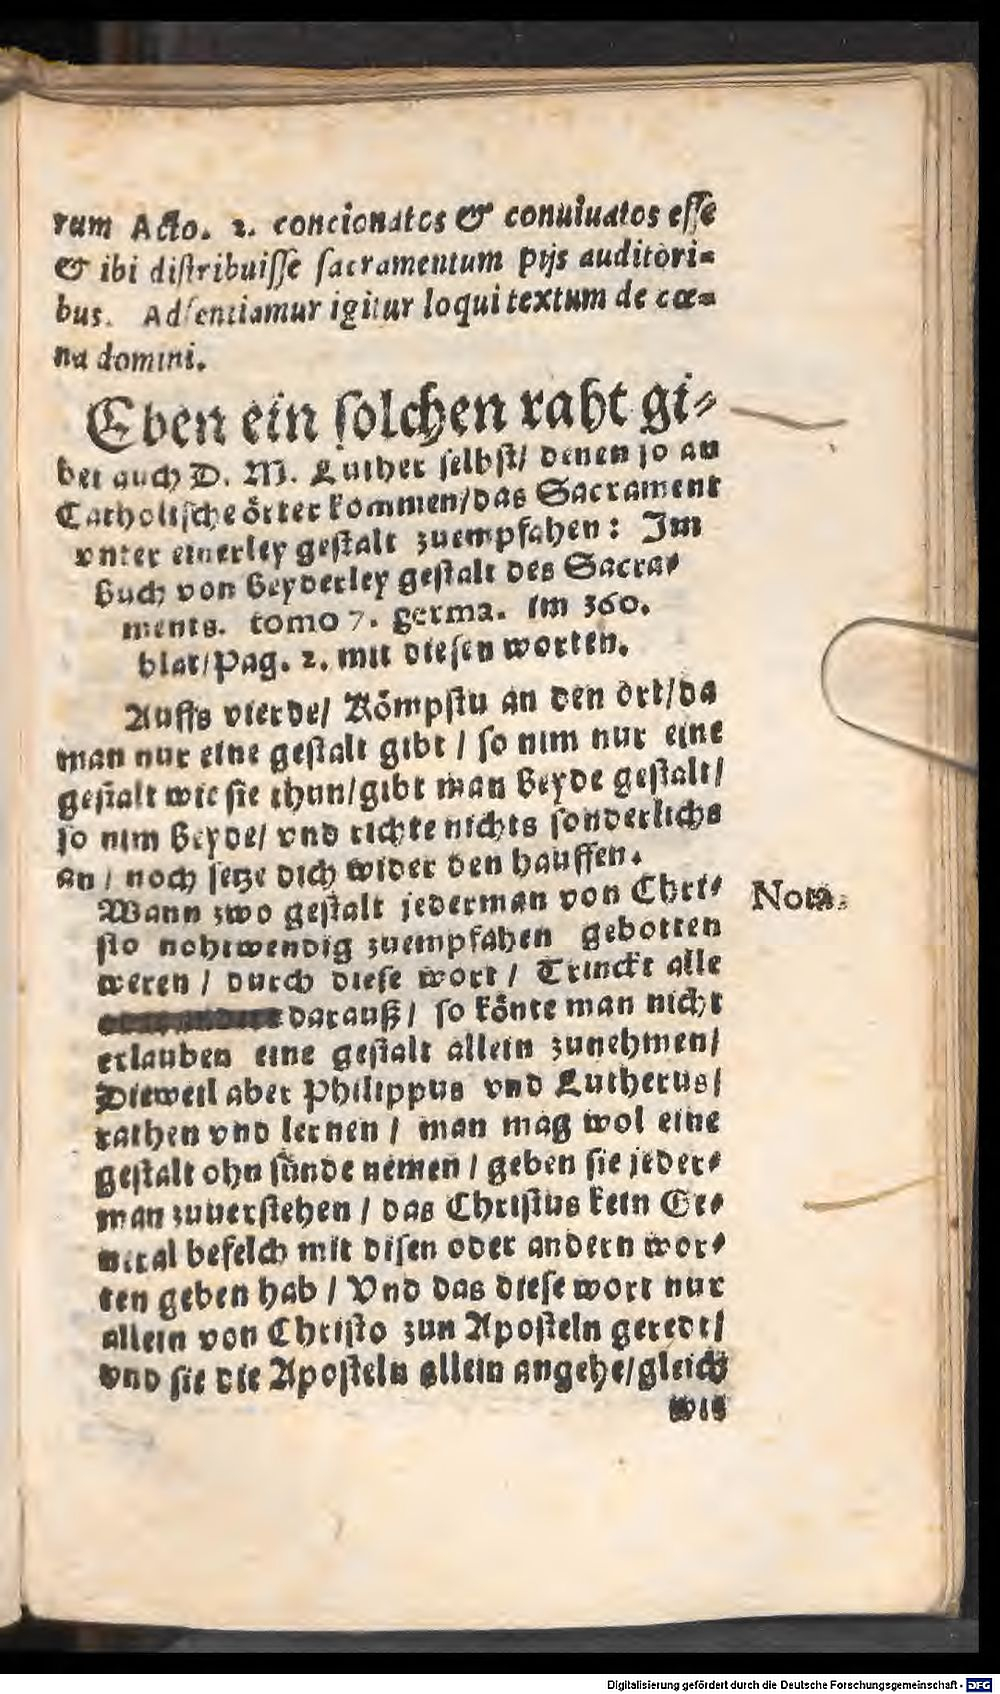 rum Acto. 2. concionatos & conuiuatos esse
& ibi distribuisse sacramentum pijs auditori-
bus. Adsentiamur igitur loqui textum de cœ-
na domini.
Eben ein solchen raht gi-
bet auch D. M. Luther selbst/ denen so an
Catholische örter kommen/das Sacrament
vnter einerley gestalt zuempfahen: Im
Buch von Beyderley gestalt des Sacra-
ments. tomo 7. germa. Im 360.
blat/Pag. 2. mit diesen worten.
Auffs vierde/ Kömpstu an den ort/da
man nur eine gestalt gibt / so nim nur eine
gestalt wie sie thun/gibt man Beyde gestalt/
so nim Beyde/ vnd richte nichts sonderlichs
an / noch setze dich wider den hauffen.
Wann zwo gestalt jederman von Chri-
Nota.
sto nohtwendig zuempfahen gebotten
weren / durch diese wort / Trinckt alle
darauß/ so könte man nicht
erlauben eine gestalt allein zunehmen/
Dieweil aber Philippus vnd Lutherus/
rathen vnd lernen / man mag wol eine
gestalt ohn sünde nemen / geben sie jeder-
man zuuerstehen / das Christus kein Ge-
neral befelch mit disen oder andern wor-
ten geben hab / Vnd das diese wort nur
allein von Christo zun Aposteln geredt/
vnd sie die Aposteln allein angehe/gleich
wie
Digitalisierung gefördert durch die Deutsche Forschungsgemeinschaft - DFG